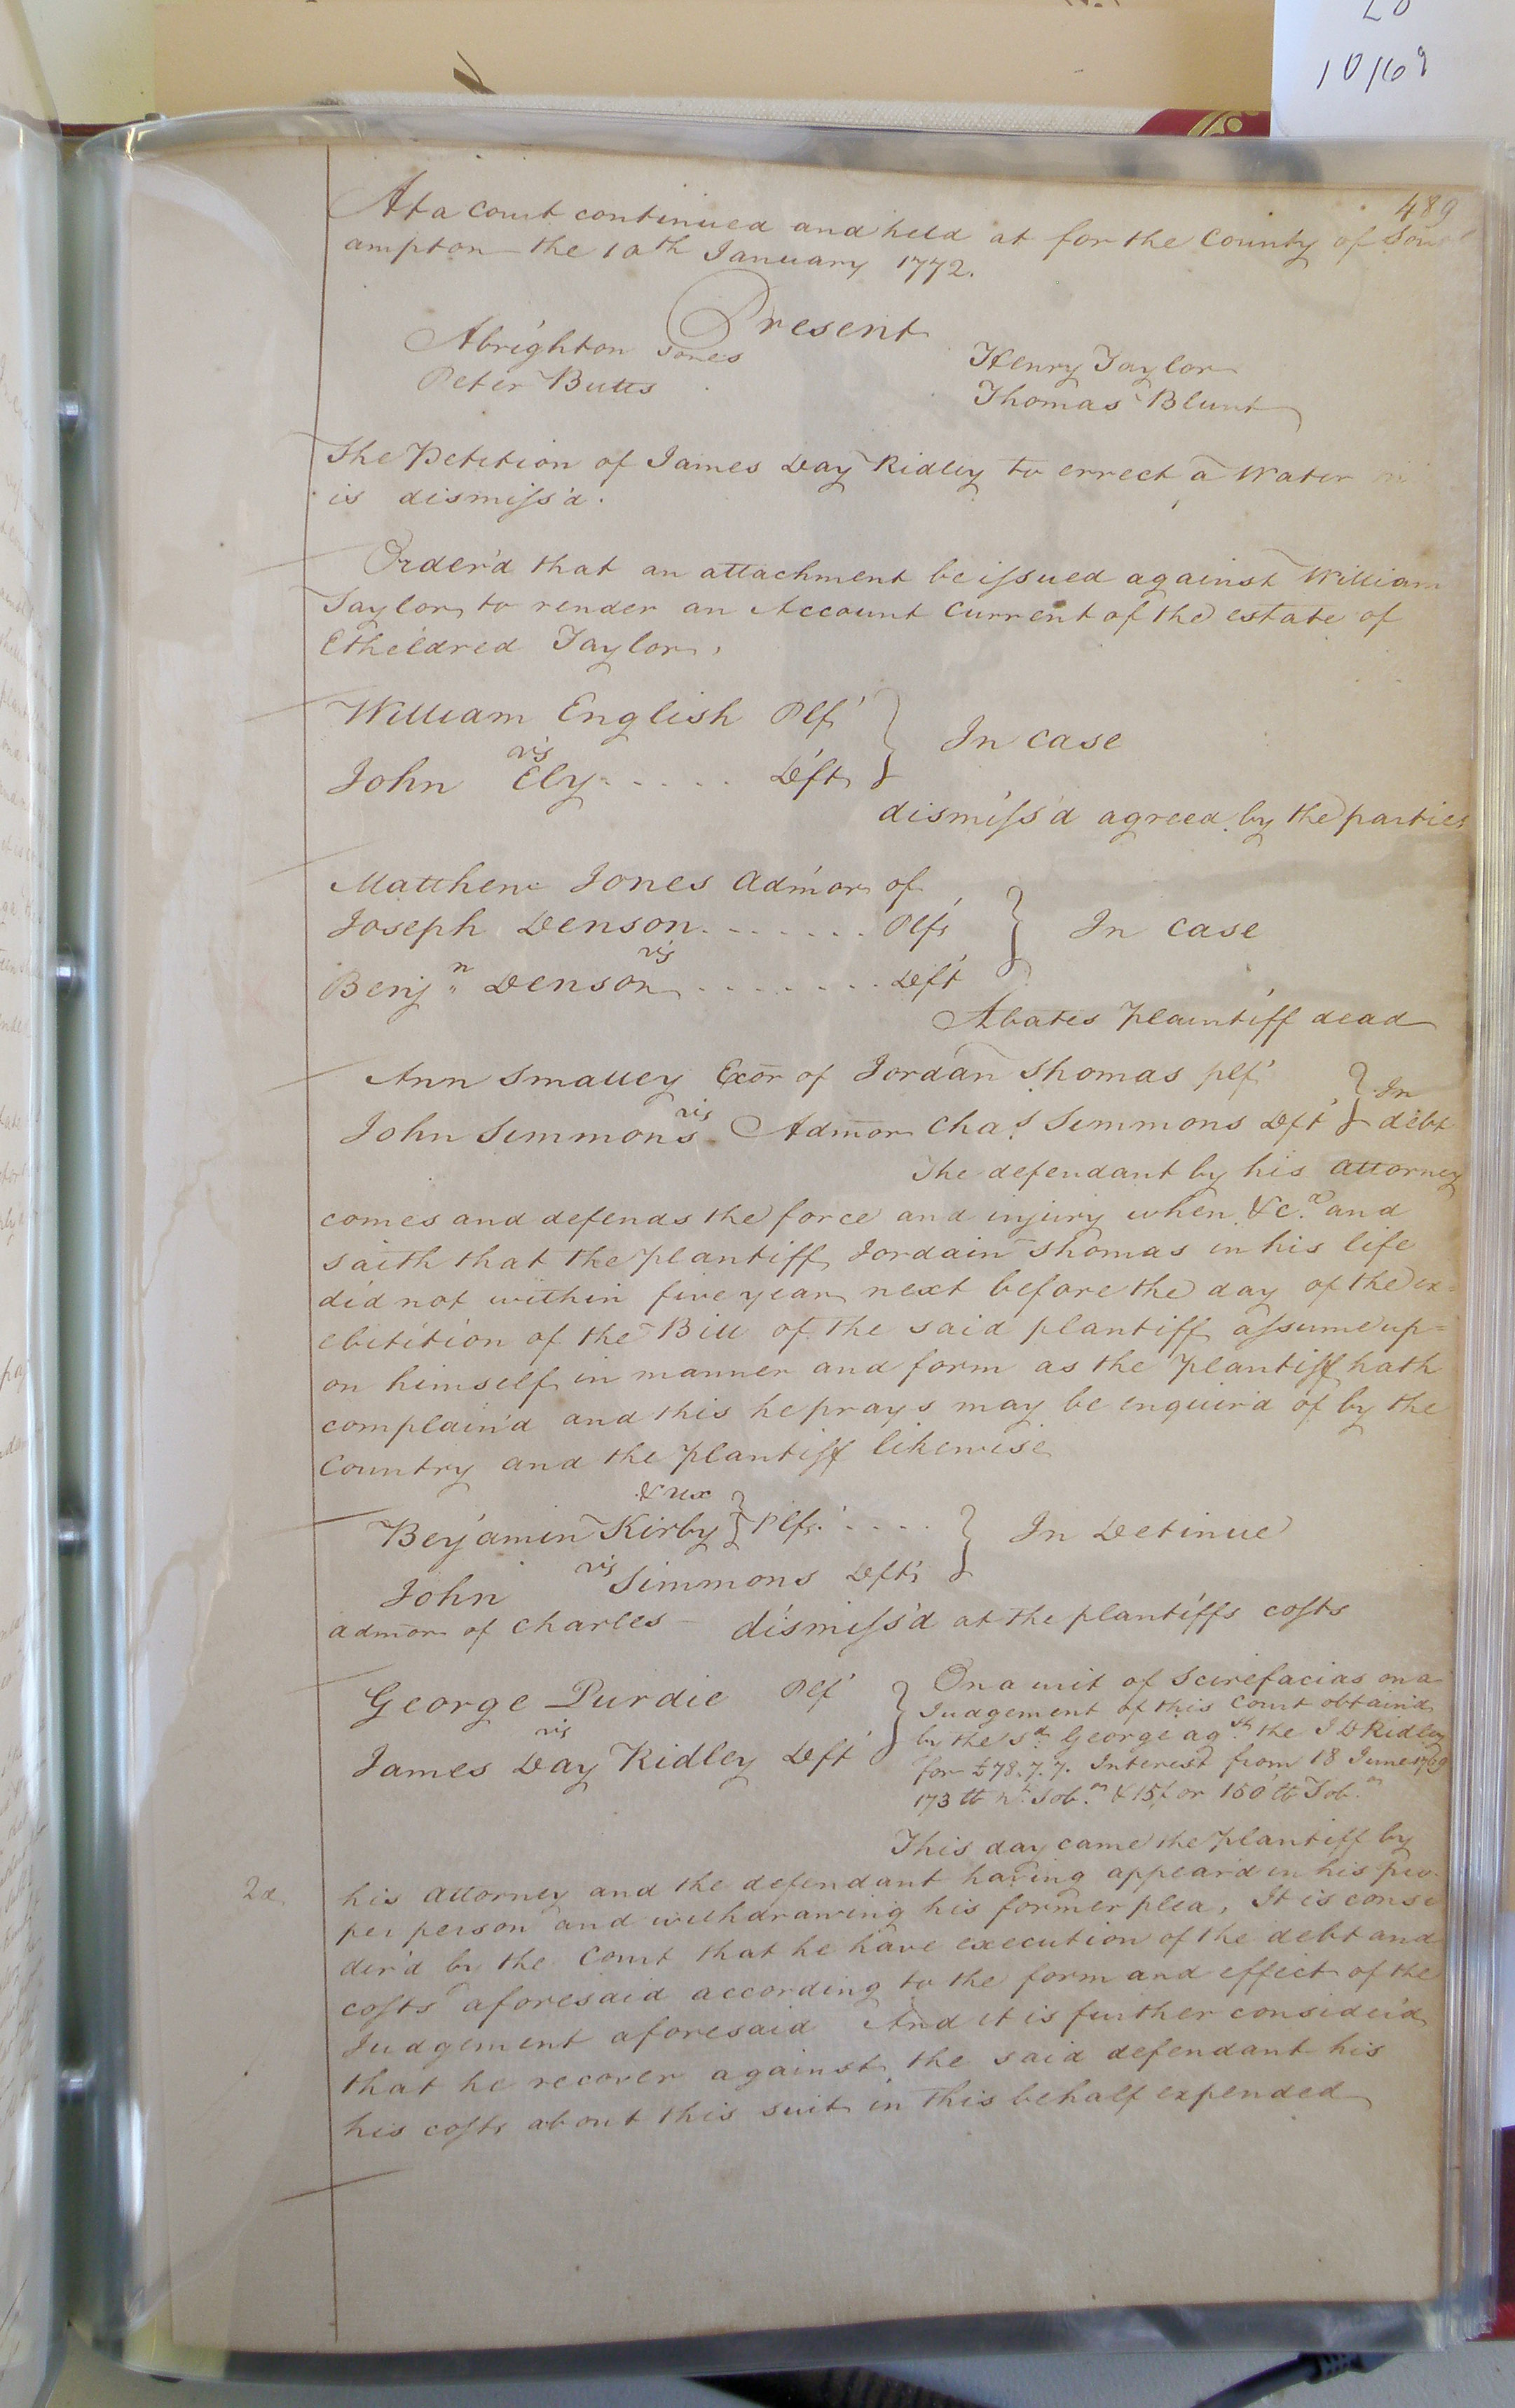 20
10/69
489
At a Court continued and held at for the County of South
ampton the 10th January 1772.
Present
Abrighton Jones
Henry Taylor
Peter Butts
Thomas Blunt
The Petition of James Day Ridley to errect a Water
is dismiss'd.
Order'd that an attachment be issued against William
Taylor to render an Account Current of the estate of
Etheldred Taylor,
William English Plf
vs
John Ely ..... Deft } In case
dismiss'd agreed by the parties
Matthew Jones Admor of
Joseph Denson ....... Plf } In case
vs
Benjn Denson ........ Deft
Abates Plaintiff dead
Ann Smalley Exor of Jordan Thomas plf } In
vs
John Simmons Admor Chas Simmons Dft } debt
The defendant by his attorney
comes and defends the force and injury when &ca and
saith that the plantiff Jordain Thomas in his life
did not within five year next before the day of the ex=
ebitition of the Bill of the said plantiff assume up=
on himself in manner and form as the plantiff hath
complain'd and this he prays may be enquir'd of by the
Country and the plantiff likewise
& ux
Benjamin Kirby } Plf .... } In Detinue
vs
John Simmons Deft
admor of Charles dismiss'd at the plantiffs costs
George Purdie Plf
vs
James Day Ridley Dft
On a writ of Scirefacias on a
Judgement of this Court obtain'd
by the sd George agst the J D Ridley
for £78.7.7. Interest from 18 June 1769
173 lb nt Tobo & 15/ or 150 lb Tobo
This day came the plantiff by
2d
his attorney and the defendant having appear'd in his pro
per person and withdrawing his former plea, It is consi
der'd by the Court that he have execution of the debt and
costs aforesaid according to the form and effect of the
Judgement aforesaid And it is further consider'd
that he recover against the said defendant his
his costs about this suit in this behalf expended